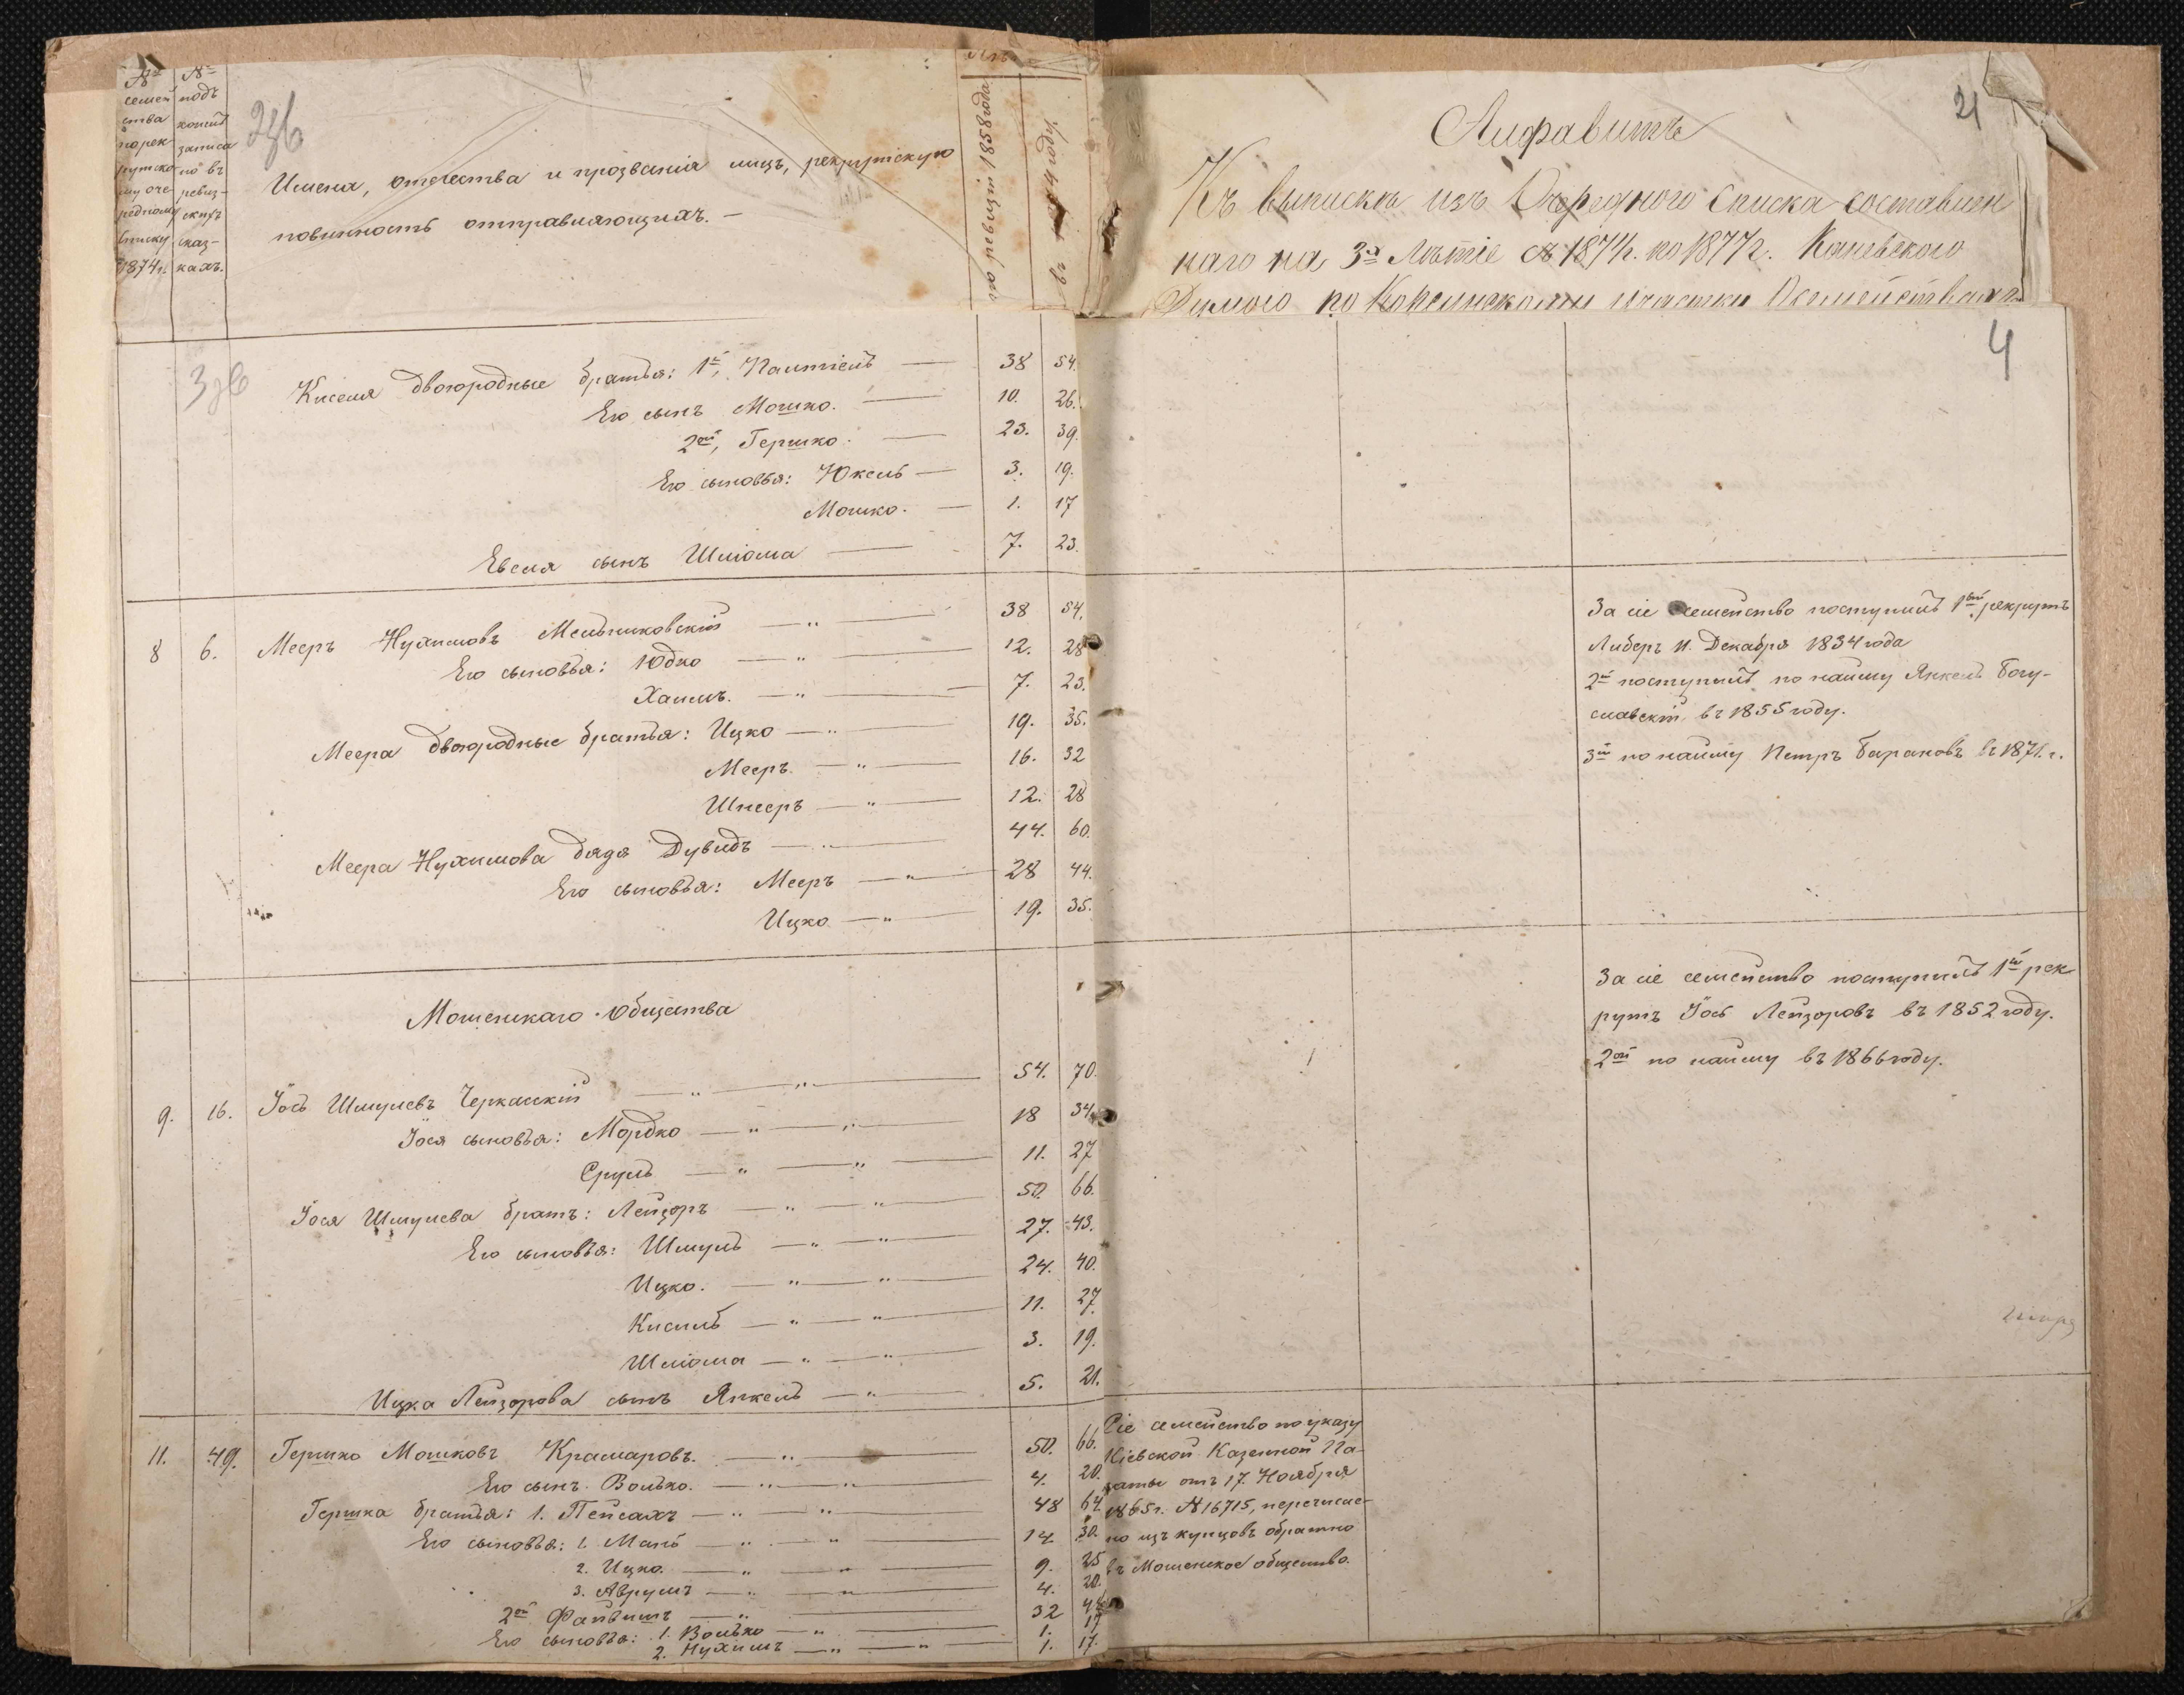 №
семей
ства
по рек
рутско
му оче
редному
списку
1874 г.
№
подъ
коимъ
записа
но въ
ревиз-
скихъ
сказ-
кахъ.
Имена, отчества и прозванія лицъ, рекрутскую
повинность отправляющихъ. —
по ревизіи 1858 года
въ 1874 году.
21
Алфавитъ
Къ выпискѣ изъ Очереднаго списка составлен
наго на 3х Лѣтіе съ 1874 г. по 1877 г. Каневского
4
Киселя двоюродные братья: 1й, Палтіель — 38 54.
Его сынъ Мошко. — 10. 26.
2ой, Гершко. — 23. 39.
Его сыновья: Юкель — 3. 19.
Мошко. — 1. 17
Евеля сынъ Шліома — 7. 23.
8 6. Мееръ Нухимовъ Мельниковскій — " — 38 54.
Его сыновья: Юдко — " — 12. 28
Хаимъ. — " — 7. 23.
Меера двоюродные братья: Ицко — " — 19. 35.
Мееръ. — " — 16. 32
Шнееръ — " — 12. 28
Меера Нухимова дядя Дувидъ — " — 44. 60.
Его сыновья: Мееръ — " — 28 44.
Ицко — " — 19. 35.
За сіе семейство поступилъ 1ый рекрутъ
Либеръ 11. Декабря 1834 года
2й поступилъ по найму Янкель Богу-
славскій, въ 1855 году.
3й по найму Петръ Барановъ въ 1871. г.
Мошенскаго Общества
9. 16. Іось Шмулевъ Черкасскій — " — " — 54. 70.
Іося сыновья: Мордко — " — " — 18 34.
Сруль — " — " — 11. 27
Іося Шмулева братъ: Лейзоръ — " — " — 50. 66.
Его сыновья: Шмуль — " — " — 27. 43.
Ицко. — " — " — 24. 40.
Кисиль — " — " — 11. 27.
Шліома — " — " — 3. 19.
Ицка Лейзорова сынъ Янкель — " — 5. 21.
За сіе семейство поступилъ 1ый рек
рутъ Іось Лейзоровъ въ 1852 году.
2ой по найму въ 1866 году.
11. 49. Гершко Мошковъ Крамаровъ. — " — 50. 66.
Его сынъ Волько. — " — " — 4. 20.
Гершка братья: 1. Пейсахъ — " — " — 48 64.
Его сыновья: 1. Мань — " — " — 14 30.
2. Ицко. — " — " — 9. 25
3. Аврумъ — " — " — 4. 20.
2ой Файвишъ — " — 32 48
Его сыновья: 1. Волько — " — 1. 17
2. Нухимъ — " — " — 1. 17.
Сіе семейство по указу
Кіевской Казенной Па-
латы отъ 17. Ноября
1865 г. № 16715, перечисле-
но изъ купцовъ обратно
въ Мошенское общество.